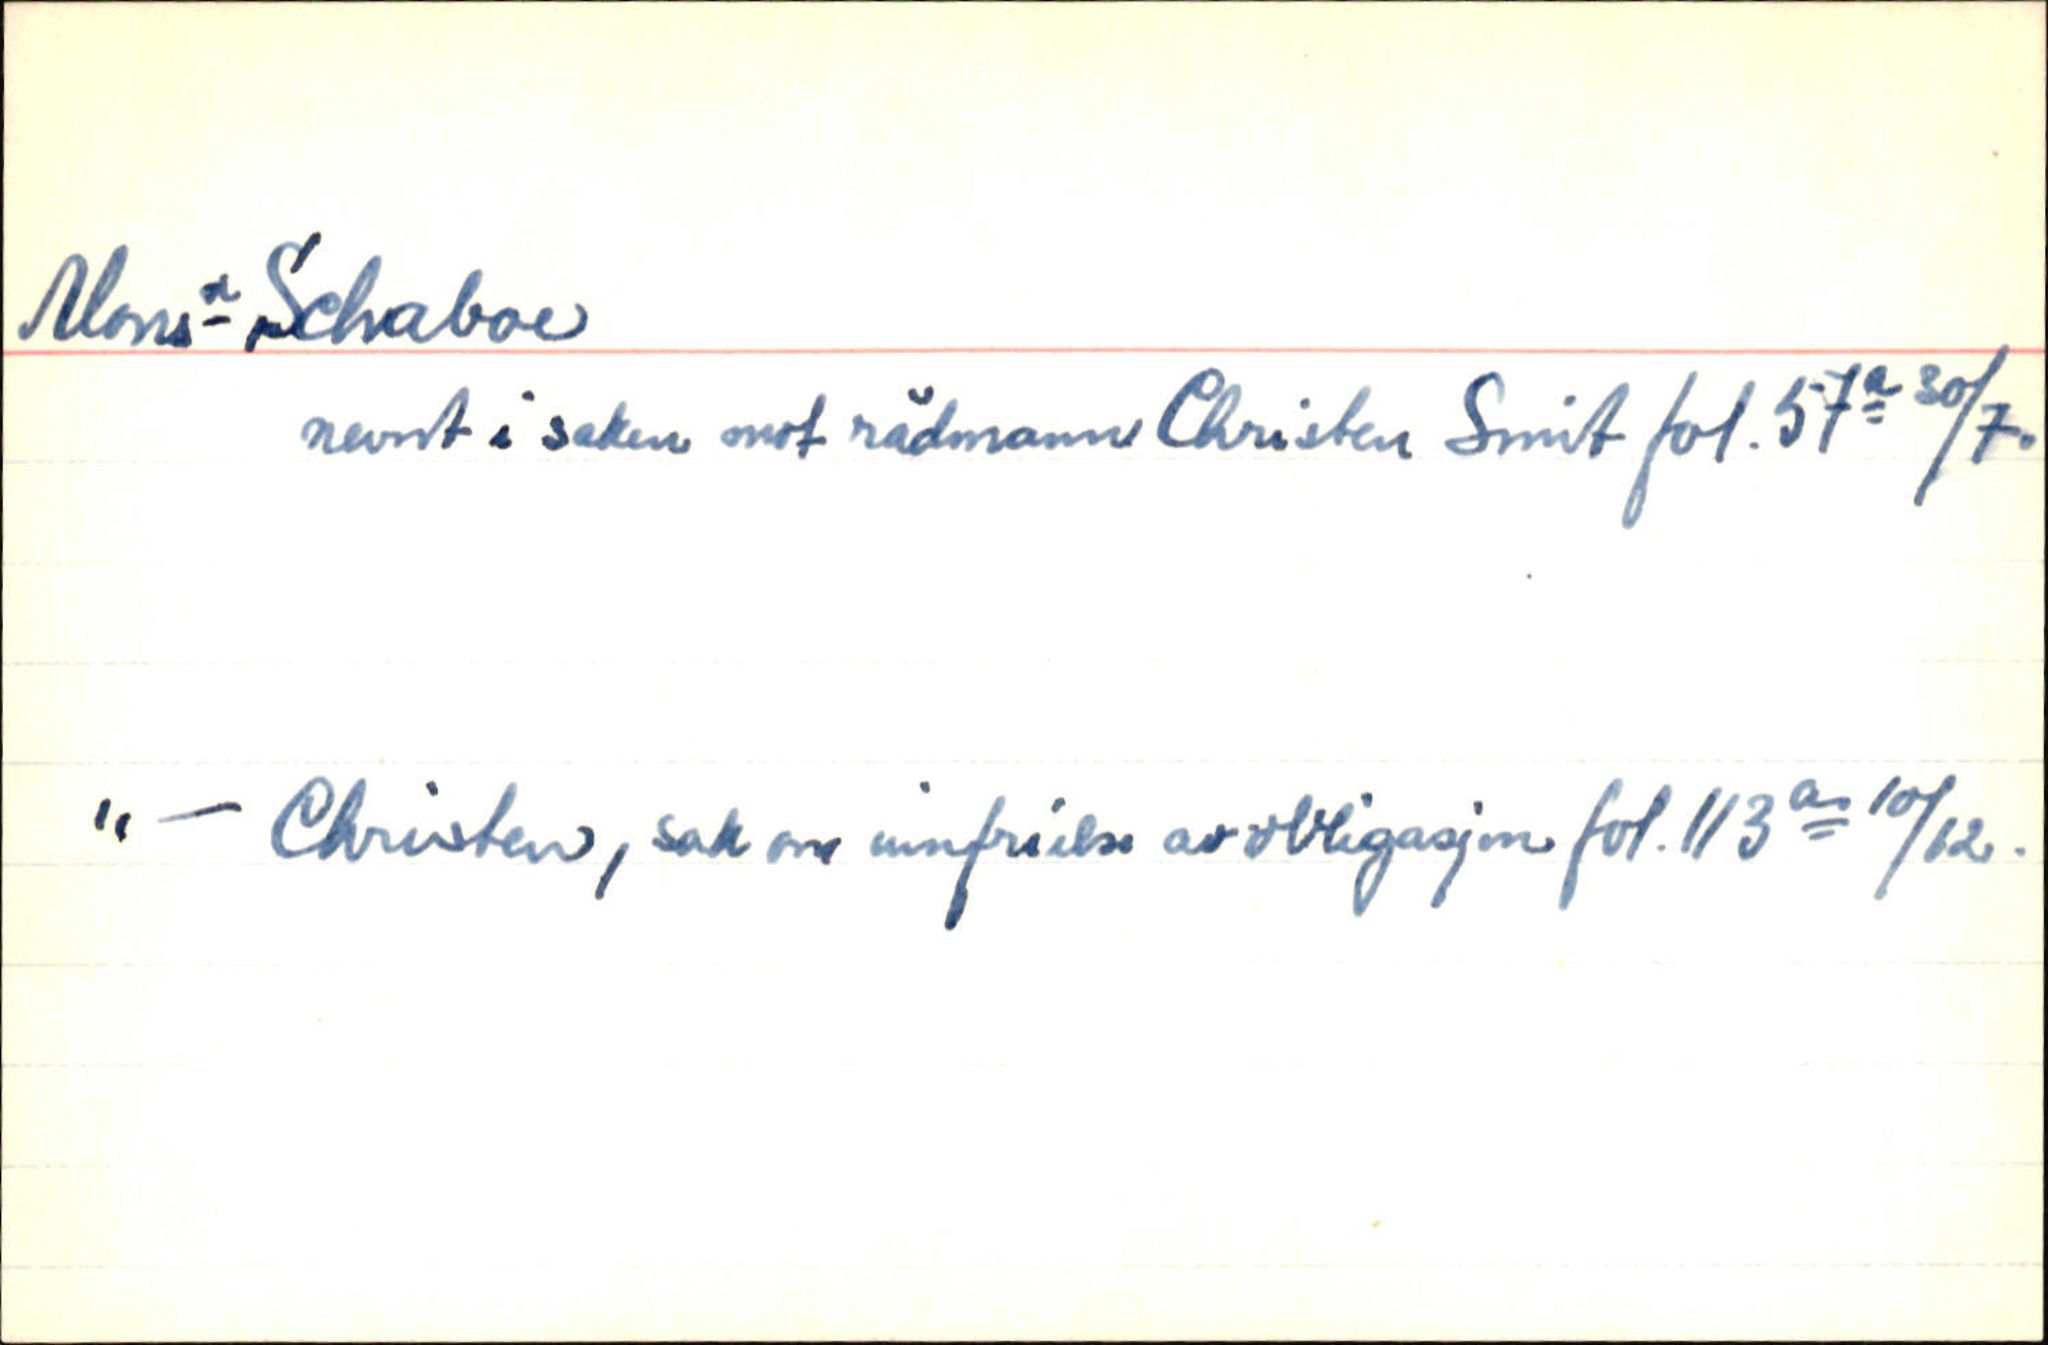 Monsr Schaboe
nevnt i saken mot rådmann Christen Smit fol. 57a 30/7.
" — Christen, sak om innfrielse av obligasjon fol. 113a 10/12.